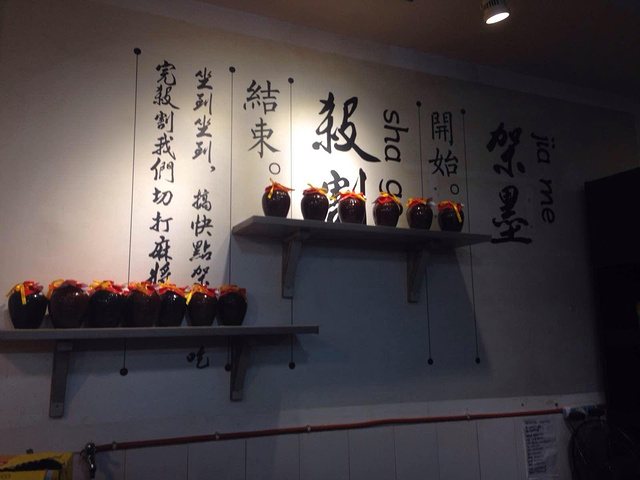 架墨
jia me
開始。
殺割
sha g
結束。
坐到坐到，搞快點架
吃
完殺割我們切打麻將